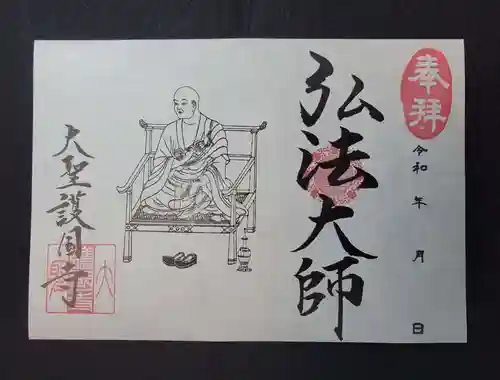 奉拝
令和 年 月 日
弘法大師
大聖護国寺